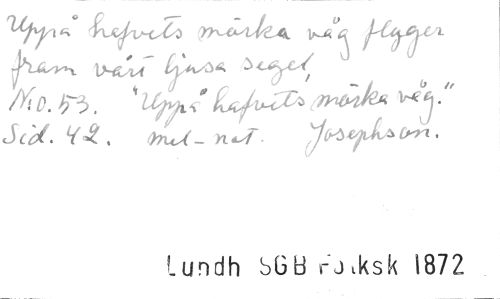 Uppå hafvets mörka våg flyger
fram vårt ljusa segel,
N:o. 53. "Uppå hafvets mörka våg."
Sid. 42. mel-not. Josephson.
Lundh SGB Folksk 1872